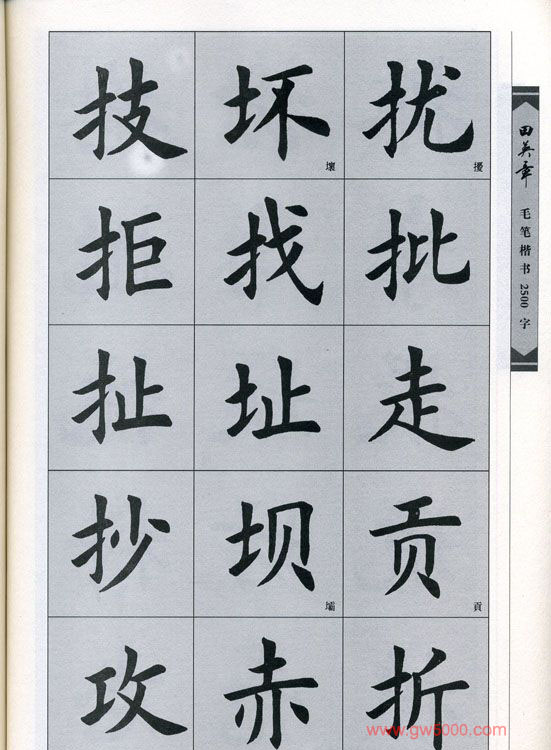 技 坏 壞 扰 擾
拒 找 批
扯 址 走
抄 坝 壩 贡 貢
攻 赤 折
田英章 毛笔楷书 2500 字
www.gw5000.com